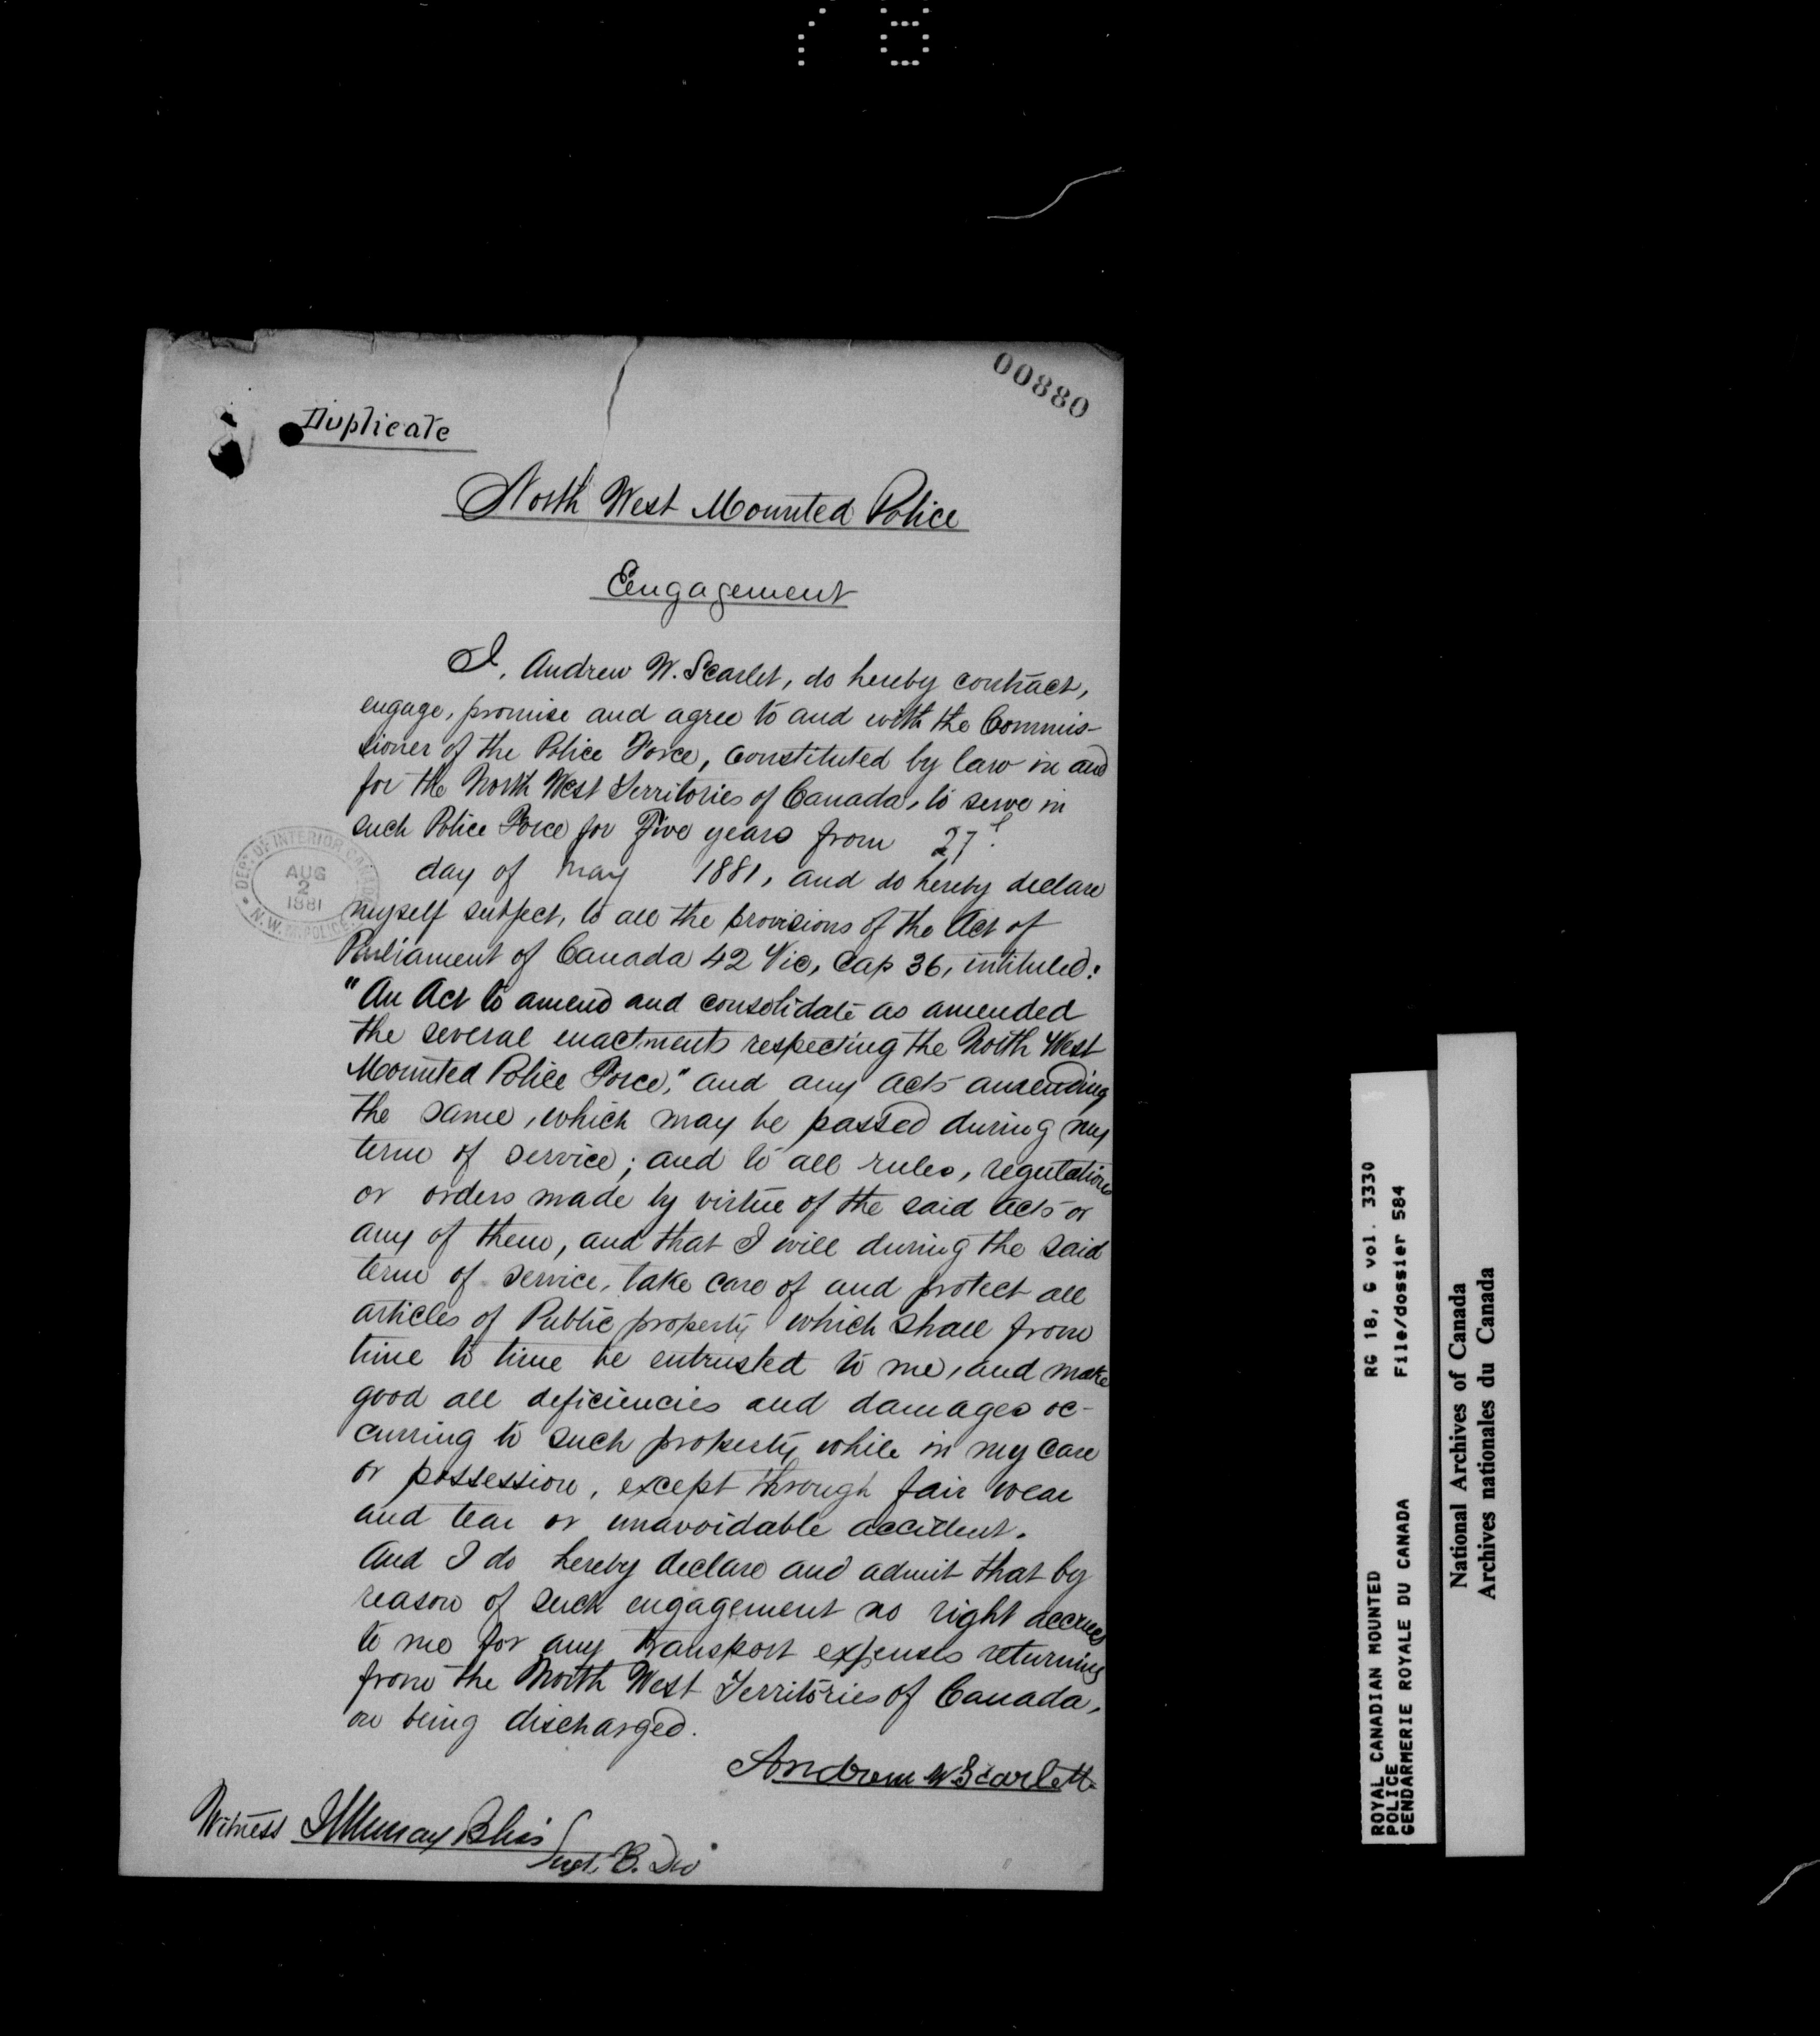 00880
Duplicate
North West Mounted Police
Engagement
I, Andrew W. Scarlet, do hereby contract,
engage, promise and agree to and with the Commis-
sioner of the Police Force, constituted by law in and
for the North West Territories of Canada, to serve in
such Police Force for Five years from 27
day of May 1881, and do hereby declare
myself subject, to all the provisions of the Act of
Parliament of Canada 42 Vic, Cap 36, intituled:
"An Act to amend and consolidate as amended
the several enactments respecting the North West
Mounted Police Force," and any acts amending
the same, which may be passed during my
term of service; and to all rules, regulations
or orders made by virtue of the said acts or
any of them, and that I will during the said
term of service, take care of and protect all
articles of Public property which shall from
time to time be entrusted to me, and make
good all deficiencies and damages oc-
curring to such property while in my care
or possession, except through fair wear
and tear or unavoidable accident.
And I do hereby declare and admit that by
reason of such engagement no right accrues
to me for any transport expenses returning
from the North West Territories of Canada,
on being discharged.
Andrew W Scarlett
Witness Murray Bliss
B. Div
DEPT OF INTERIOR CANADA
AUG
2
1881
N.W.M. POLICE
ROYAL CANADIAN MOUNTED RG 18, G vol. 3330
POLICE File/dossier 584
GENDARMERIE ROYALE DU CANADA
National Archives of Canada
Archives nationales du Canada